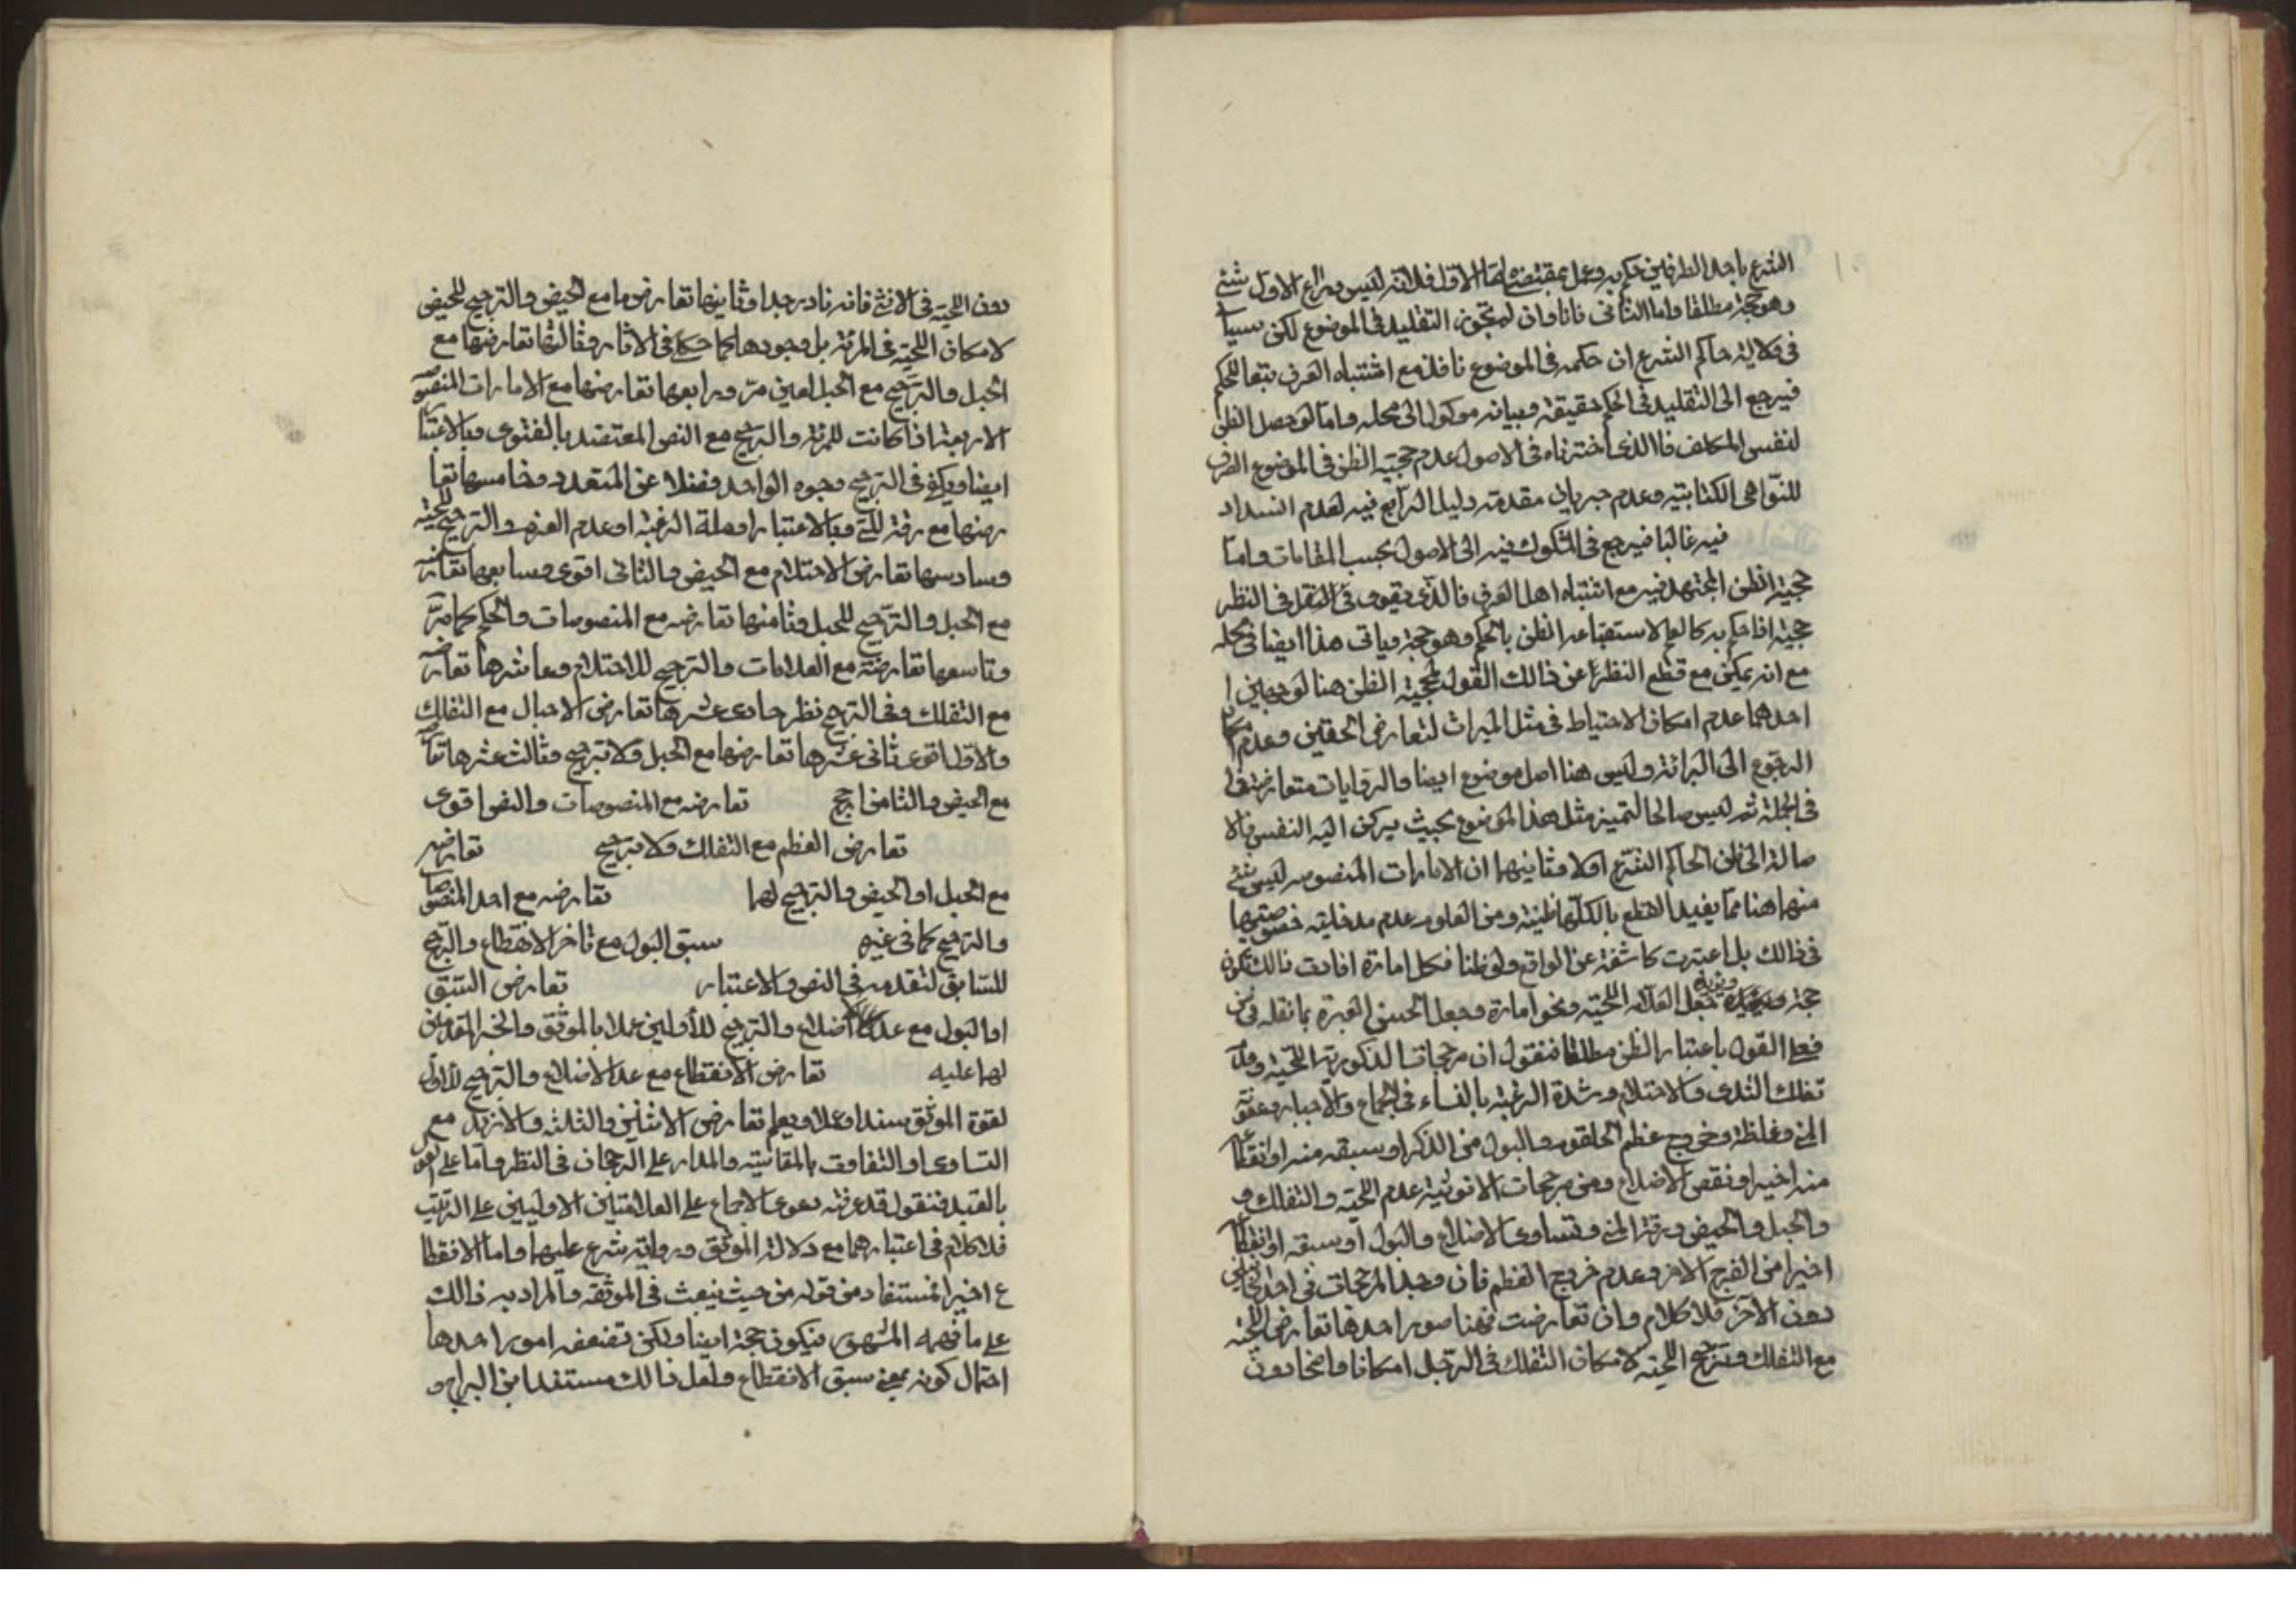 الشرع باحد الطرفين حكم به وعمل بمقتضاه الاول فلانه ليس وراء الاول شئ
وهو حجة مطلقا واما الثانى فانا وان لم نجوز التقليد فى الموضوع لكن سيأ
فى ولاية حاكم الشرع ان حكمه فى الموضوع نافذ مع اشتباه العرف تبعا للحكم
فيرجع الى التقليد فى الحكم حقيقة وبيانه موكول الى محله واما لو حصل الظن
لنفس المكلف فالذى اخترناه فى الاصول عدم حجية الظن فى الموضوع الصرف
للنواهى الكتابية وعدم جريان مقدمة دليل الرابع فيه لعدم انسداد
فيه غالبا فيرجع فى المشكوك فيه الى الاصول بحسب المقامات واما
حجية الظن المجتهد فيه مع اشتباه اهل العرف فالذى يقوى فى النظر
حجيته اذا حكم به كالعلم لاستتباعه الظن بالحكم وهو حجة وياتى هذا ايضا فى محله
مع انه يمكن مع قطع النظر عن ذالك القول بحجية الظن هنا لوجهين
احدهما عدم امكان الاحتياط فى مثل الميراث لتعارض الحقين وعدم امكان
الرجوع الى البرائة وليس هنا اصل موضوع ايضا والروايات متعارضة
فى الجملة ثم ليس صالحا لتميز مثل هذا الموضوع بحيث يركن اليه النفس فالا
صالة الى ظن الحاكم الشرع اولا وثانيهما ان الامارات المنصوصه ليس شئ
منها هنا مما يفيد القطع بالكلها ظنية ومن المعلوم عدم مدخلية خصوصيتها
فى ذالك بل اعتبرت كاشفة عن الواقع ولو ظنا فكل امارة افادت ذالك تكون
حجة ويؤيده جعل العلامه اللحية ونحو امارة وجعل الحسن العبرة بما نقله
فعلى القول باعتبار الظن مطلقا فنقول ان مرجحات الذكورية اللحية
تفلك الثدى والاحتلام وشدة الرغبة بالنساء فى الجماع والاحبال
المنى وغلظة وخروج عظم الحلقوم والبول من الذكر او سبقه منه او انقطا
منه اخيرا ونقص الاضلاع ومن مرجحات الانوثية عدم اللحية والتفلك و
والحبل والحيض ورقة المنى وتساوى الاضلاع والبول او سبقه او انقطا
اخيرا من الفرج الاخر وعدم خروج العظم فان وجد المرجحات فى احد
دون الاخر فلا كلام وان تعارضت فهنا صور احدها تعارض اللحية
مع التفلك وترجح اللحية لامكان التفلك فى الرجل امكانا واضحا دون
دون اللحية فى الانثى فانه نادر جدا وثانيها تعارضها مع الحيض والترجيح للحيض
لامكان اللحية فى المرئة بل وجودها كما حكى فى الاثار وثالثها تعارضها مع
الحبل والترجيح مع الحبل لعين مر ورابعها تعارضها مع الامارات المنصوصة
الاربعة اذا كانت للمرئة والترجيح مع النص المعتضد بالفتوى وبالاعتبا
ايضا ويكفى فى الترجيح وجوه الواحد فضلا عن المتعدد وخامسها تعا
رضها مع رقة المنى وبالاعتبار او قلة الرغبة او عدم العظم والترجيح للحية
وسادسها تعارض الاحتلام مع الحيض والثانى اقوى وسابعها تعارضه
مع الحبل والترجيح للحبل وثامنها تعارضه مع المنصوصات والحكم كما مر
وتاسعها تعارضه مع العلامات والترجيح للاحتلام وعاشرها تعارضه
مع التفلك وفى الترجيح نظر حادى عشرها تعارض الاحبال مع التفلك
والاول اقوى ثانى عشرها تعارضها مع الحبل ولا ترجيح وثالث عشرها
مع الحيض والثامن ارجح تعارضه مع المنصوصات والنص اقوى
تعارض العظم مع التفلك ولا ترجيح تعارضه
مع الحبل او الحيض والترجيح لهما تعارضه مع احد المنصوصات
والترجيح كما فى غيره سبق البول مع تاخر الانقطاع والترجيح
للسابق لتقدمه فى النص والاعتبار تعارض السبق
او البول مع عدد اضلاع والترجيح للأولين عملا بالموثق والخبر المقدمين
لهما عليه تعارض الانقطاع مع عد الاضلاع والترجيح للأول
لقوة الموثق سندا وعملا ويعلم تعارض الاثنين والثلثه والازيد مع
التساوى او التفاوت بالمقايسة والمدار على الرجحان فى النظر واما على القول
بالتعبد فنقول قد عرفت دعوى الاجماع على العلامتين الاوليين على الترتيب
فلا كلام فى اعتبارهما مع دلالة الموثق ورواية شرع عليهما واما الانقطا
ع اخيرا فمستفاد من قوله من حيث ينبعث فى الموثقه والمراد به ذالك
على ما فهمه المشهور فيكون حجة ايضا ولكن تضعفه امور احدها
احتمال كونه بمعنى سبق الانقطاع ولعل ذالك مستفاد من البراج و